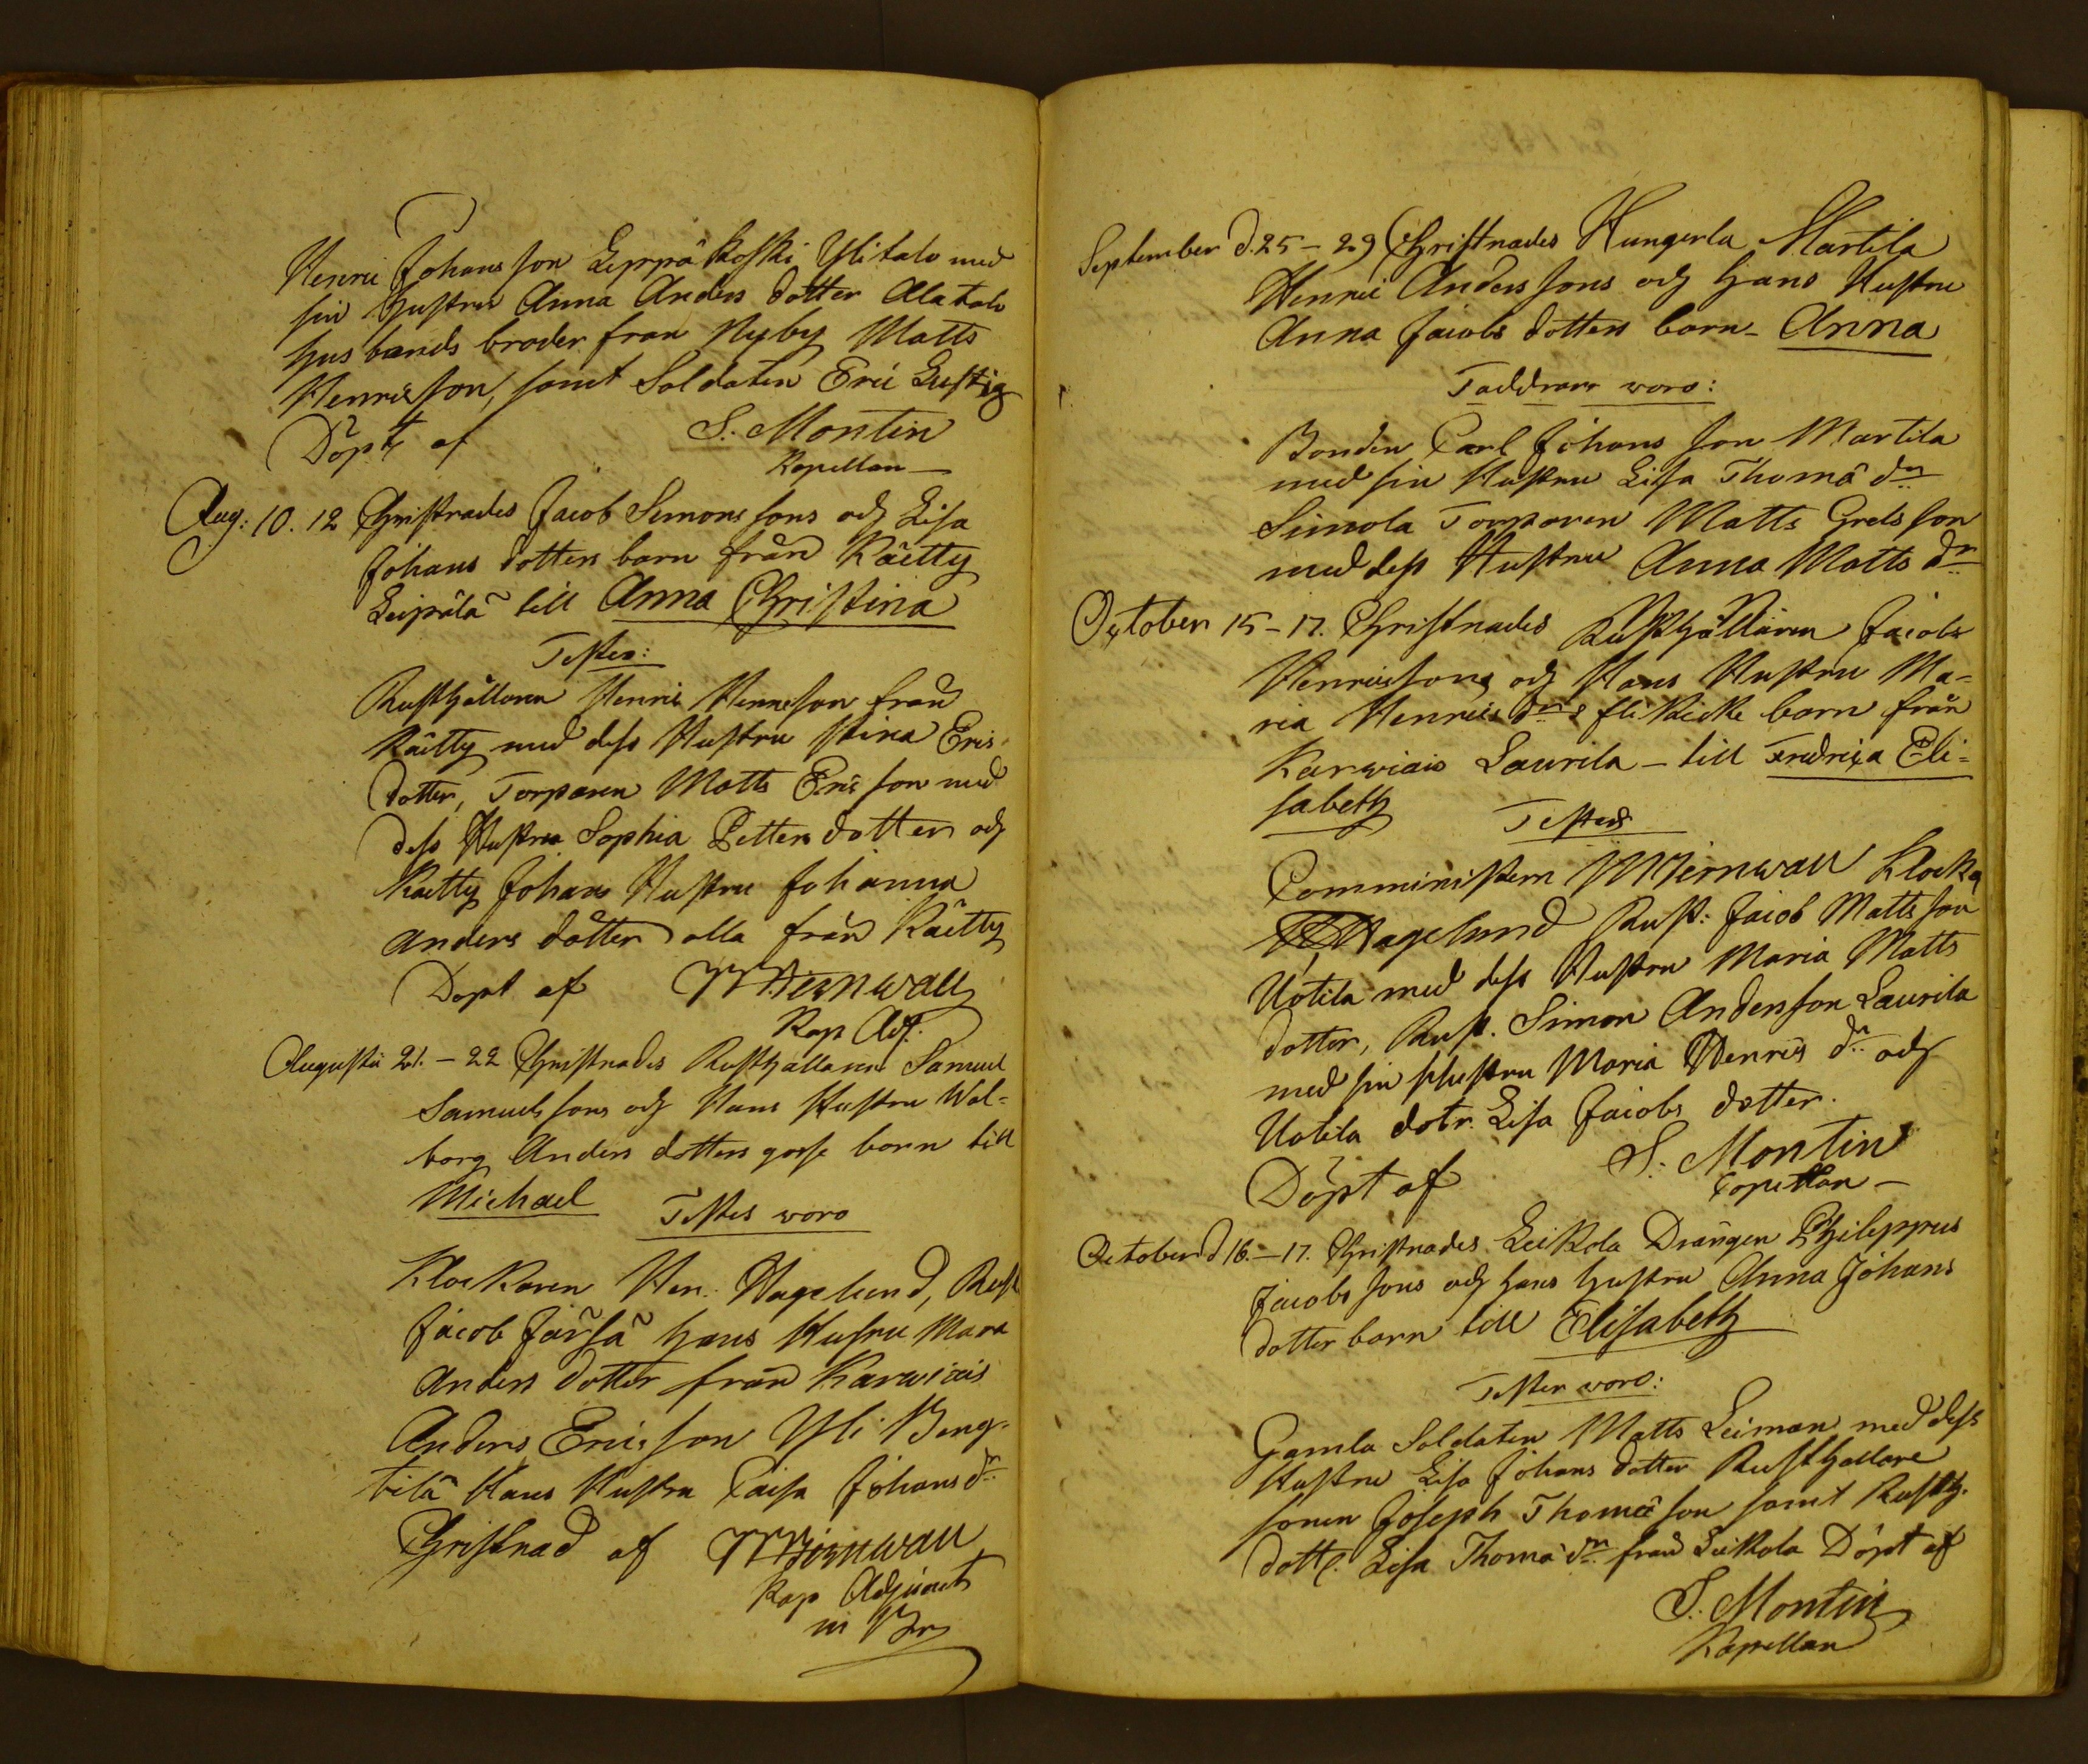 Henric Johans son Leppäkoski Ylitalo med
sin Hustru Anna Anders dotter Alatalo
husbands broder från Nyby Matts
Henricsson, samt Soldaten Eric Lustig
Döpt af S. Montin
Kapellan
Aug: 10. 12 Christnades Jacob Simons sons och Lisa
Johans dotters barn från Räetty
Leipälä till Anna Christina
Testes:
Rusthållaren Henric Henricson från
Räetty med dess Hustru Stina Erics
dotter, Torparen Matts Ericson med
dess Hustru Sophia Petters dotter och
Raetty Johans Hustru Johanna
Anders dotter alla från Räetty
Döpt af Miernwall
Kap Adj.
Augusti 21. - 22 Christnades Rusthållaren Samuel
Samuels sons och Hans Hustru Wal-
borg Anders dotters gosse barn till
Michael Testes woro
Klockaren Hen: Hagelund, Rust
Jacob Järsä hans Hustru Mara
Anders dotter från Karwiais
Anders Ericsson Yli Beng-
tilä Hans Hustru Caisa Johans dr
Christnad af Miernwall
Kap Adjunct
September d. 25 - 29 Christnades Hungerla Martila
Henric Anders sons och hans Hustru
Anna Jacobs dotters barn - Anna
Faddrar woro:
Bonden Carl Johans son Martila
med sin Hustru Lisa Thomä dr
Simola Torparen Matts Grels son
med dess Hustru Anna Matts dr
October 15 - 17. Christnades Rusthållaren Jacobs
Henricsons och Hans Hustru Ma-
ria Henrics drs flicke barn från
Karwiais Laurila - till Fredrica Eli-
sabeth Testes
Comministern Miernwall Klock
Hagelund Rust: Jacob Mattsson
Uotila med dess Hustru Maria Matts
dotter, Rust. Simon Andersson Laurila
med sin Hustru Maria Henrics dr och
Uotila dotr. Lisa Jacobs dotter.
Döpt af S. Montin
Capellan
October d 16. - 17. Christnades Leikola Drängen Philippus
Jacobs sons och hans hustru Anna Johans
dotter barn till Elisabeth
Testes woro:
Gamla Soldaten Matts Leiman med dess
Hustru Lisa Johans dotter Rusthållare
sonen Joseph Thomä son samt Rusth.
dottr. Lisa Thomä dr från Leikola Döpt af
S. Montin
Kapellan